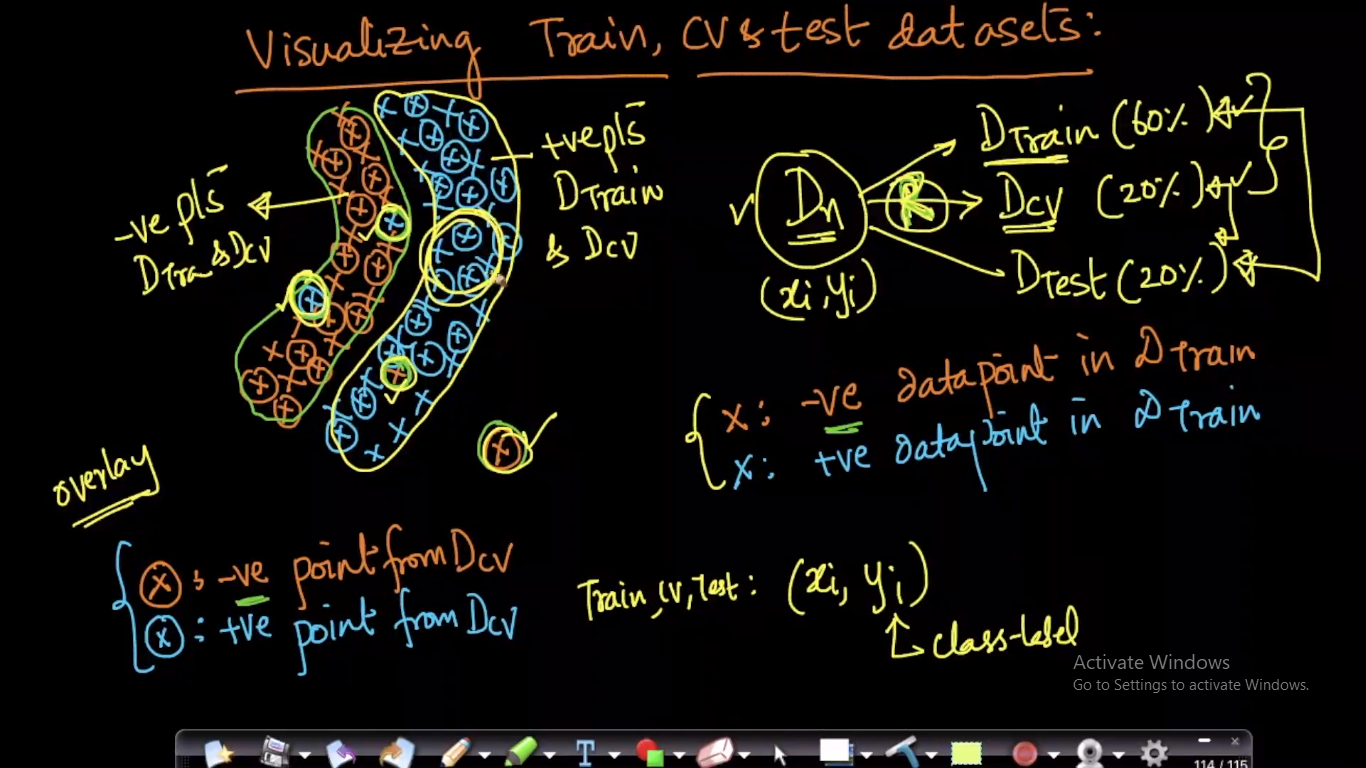 Visualizing Train, CV & test datasets:
-ve pts
DTra & DCV
+ve pts
DTrain
& DCV
Dn
(xi, yi)
R
DTrain (60%)
DCV (20%)
DTest (20%)
x: -ve datapoint in DTrain
x: +ve datapoint in DTrain
overlay
x: -ve point from DCV
x: +ve point from DCV
Train, CV, Test: (xi, yi)
class-label
Activate Windows
Go to Settings to activate Windows.
T
114 / 115